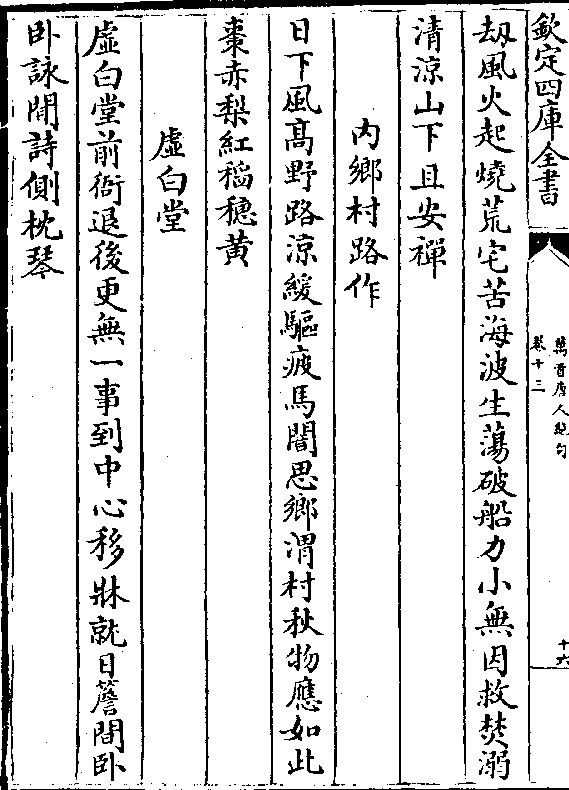 欽定四庫全書
萬首唐人絶句
卷十三
十六
刼風火起燒荒宅苦海波生蕩破船力小無因救焚溺
清涼山下且安禪
内鄉村路作
日下風髙野路涼緩驅疲馬闇思鄉渭村秋物應如此
棗赤梨紅稻穗黄
虛白堂
虛白堂前衙退後更無一事到中心移牀就日簷間卧
卧詠閒詩側枕琴